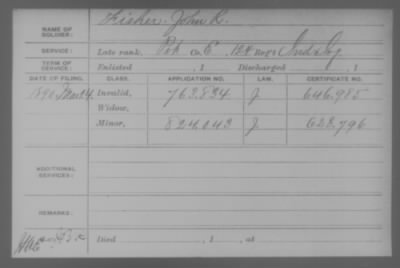 NAME OF SOLDIER: Fisher, John R.
SERVICE: Late rank, Co. E Reg't
TERM OF SERVICE: Enlisted , 1 Discharged , 1
DATE OF FILING. CLASS. APPLICATION NO. LAW. CERTIFICATE NO.
1890 Invalid, 763.834 J 646.985
Widow,
Minor, 824.043 J. 622.796
ADDITIONAL SERVICES:
REMARKS:
Died , 1 , at